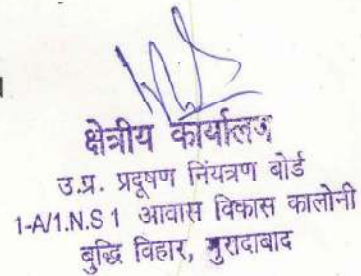 क्षेत्रीय कार्यालय
उ.प्र. प्रदूषण नियंत्रण बोर्ड
1-A/1.N.S 1 आवास विकास कालोनी
बुद्धि विहार, मुरादाबाद